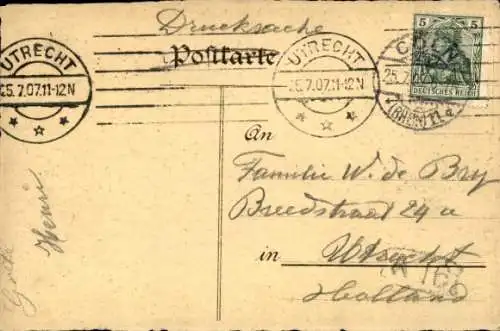 Drucksache
Postkarte
UTRECHT
25.7.07.11-12N
UTRECHT
25.7.07.11-12N
5 5
DEUTSCHES REICH
CÖLN
25.7.
(RHEIN) 11
An
Familie W. de Bry
Breedstraat 24 a
in Utrecht
Holland
Henri